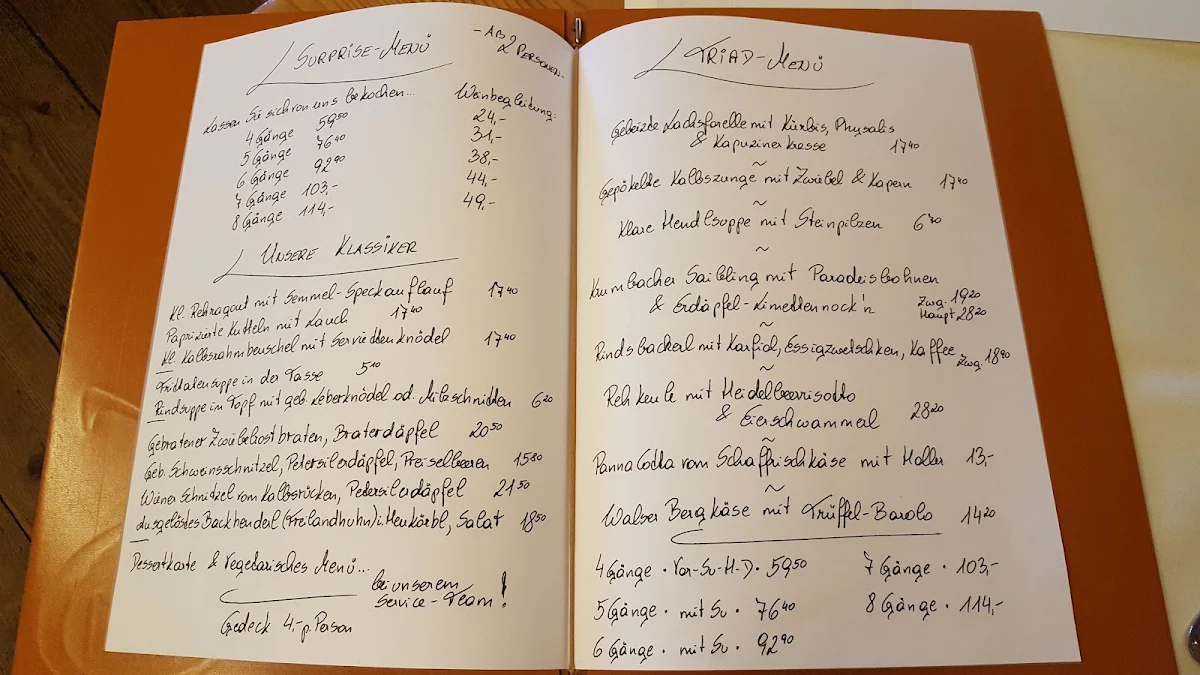 SURPRISE-MENÜ
- AB 2 PERSONEN -
Lassen Sie sich von uns bekochen... Weinbegleitung:
4 Gänge 59,50 24,-
5 Gänge 76,40 31,-
6 Gänge 92,90 38,-
7 Gänge 103,- 44,-
8 Gänge 114,- 49,-
UNSERE KLASSIKER
Kl. Rehragout mit Semmel-Speckauflauf 17,40
Paprizierte Kutteln mit Lauch 17,40
Kl. Kalbsrahmbeuschel mit Serviettenknödel 17,40
Frittatensuppe in der Tasse 5,10
Rindsuppe im Topf mit geb. Leberknödel od. Milzschnitten 6,20
Gebratener Zwiebelrostbraten, Braterdäpfel 20,50
Geb. Schweinsschnitzel, Petersilerdäpfel, Preiselbeeren 15,80
Wiener Schnitzel vom Kalbsrücken, Petersilerdäpfel 21,50
Ausgelöstes Backhenderl (Freilandhuhn) i. Heukörbl, Salat 18,50
Dessertkarte & Vegetarisches Menü...
bei unserem
Service-Team!
Gedeck 4,- p. Person
TRIAD-MENÜ
Gebeizte Lachsforelle mit Kürbis, Physalis
& Kapuzinerkresse 17,40
~
Gepökelte Kalbszunge mit Zwiebel & Kapern 17,40
~
Klare Hendlsuppe mit Steinpilzen 6,40
~
Krumbacher Saibling mit Paradeisbohnen
& Erdäpfel-Limettennock'n Zwg. 19,20
Haupt 28,20
~
Rindsbackerl mit Karfiol, Essigzwetschken, Kaffee Zwg. 18,90
~
Rehkeule mit Heidelbeerrisotto
& Eierschwammerl 28,20
~
Panna Cotta vom Schaffrischkäse mit Holler 13,-
~
Walser Bergkäse mit Trüffel-Barolo 14,20
4 Gänge · Vor-Su-H-D · 59,50 7 Gänge · 103,-
5 Gänge · mit Su · 76,40 8 Gänge · 114,-
6 Gänge · mit Su · 92,90